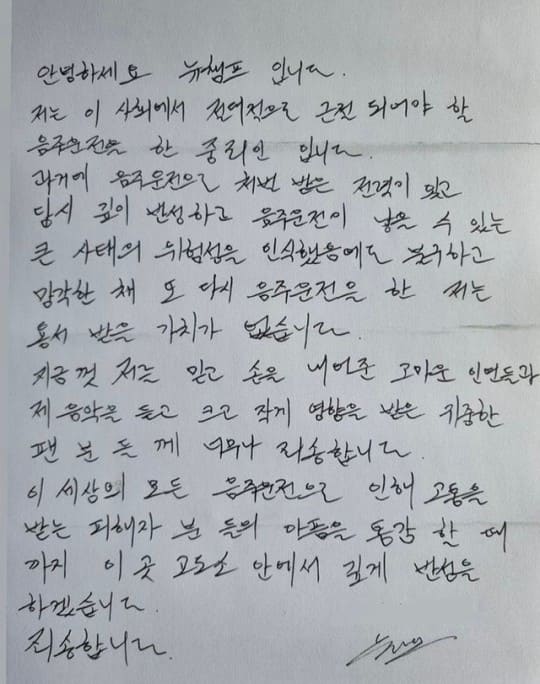 안녕하세요 뉴챔프 입니다.
저는 이 사회에서 전여적으로 근전 되어야 할
음주운전을 한 중죄인 입니다.
과거에 음주운전으로 처벌 받은 전력이 있고
당시 깊이 반성하고 음주운전이 낳을 수 있는
큰 사태의 위험성을 인식했음에도 불구하고
망각한 채 또 다시 음주운전을 한 저는
용서 받을 가치가 없습니다.
지금껏 저를 믿고 손을 내어준 고마운 인연들과
제 음악을 듣고 크고 작게 영향을 받은 귀중한
팬 분 들 께 너무나 죄송합니다.
이 세상의 모든 음주운전으로 인해 고통을
받는 피해자 분 들의 아픔을 통감 할 때
까지 이 곳 교도소 안에서 깊게 반성을
하겠습니다.
죄송합니다.